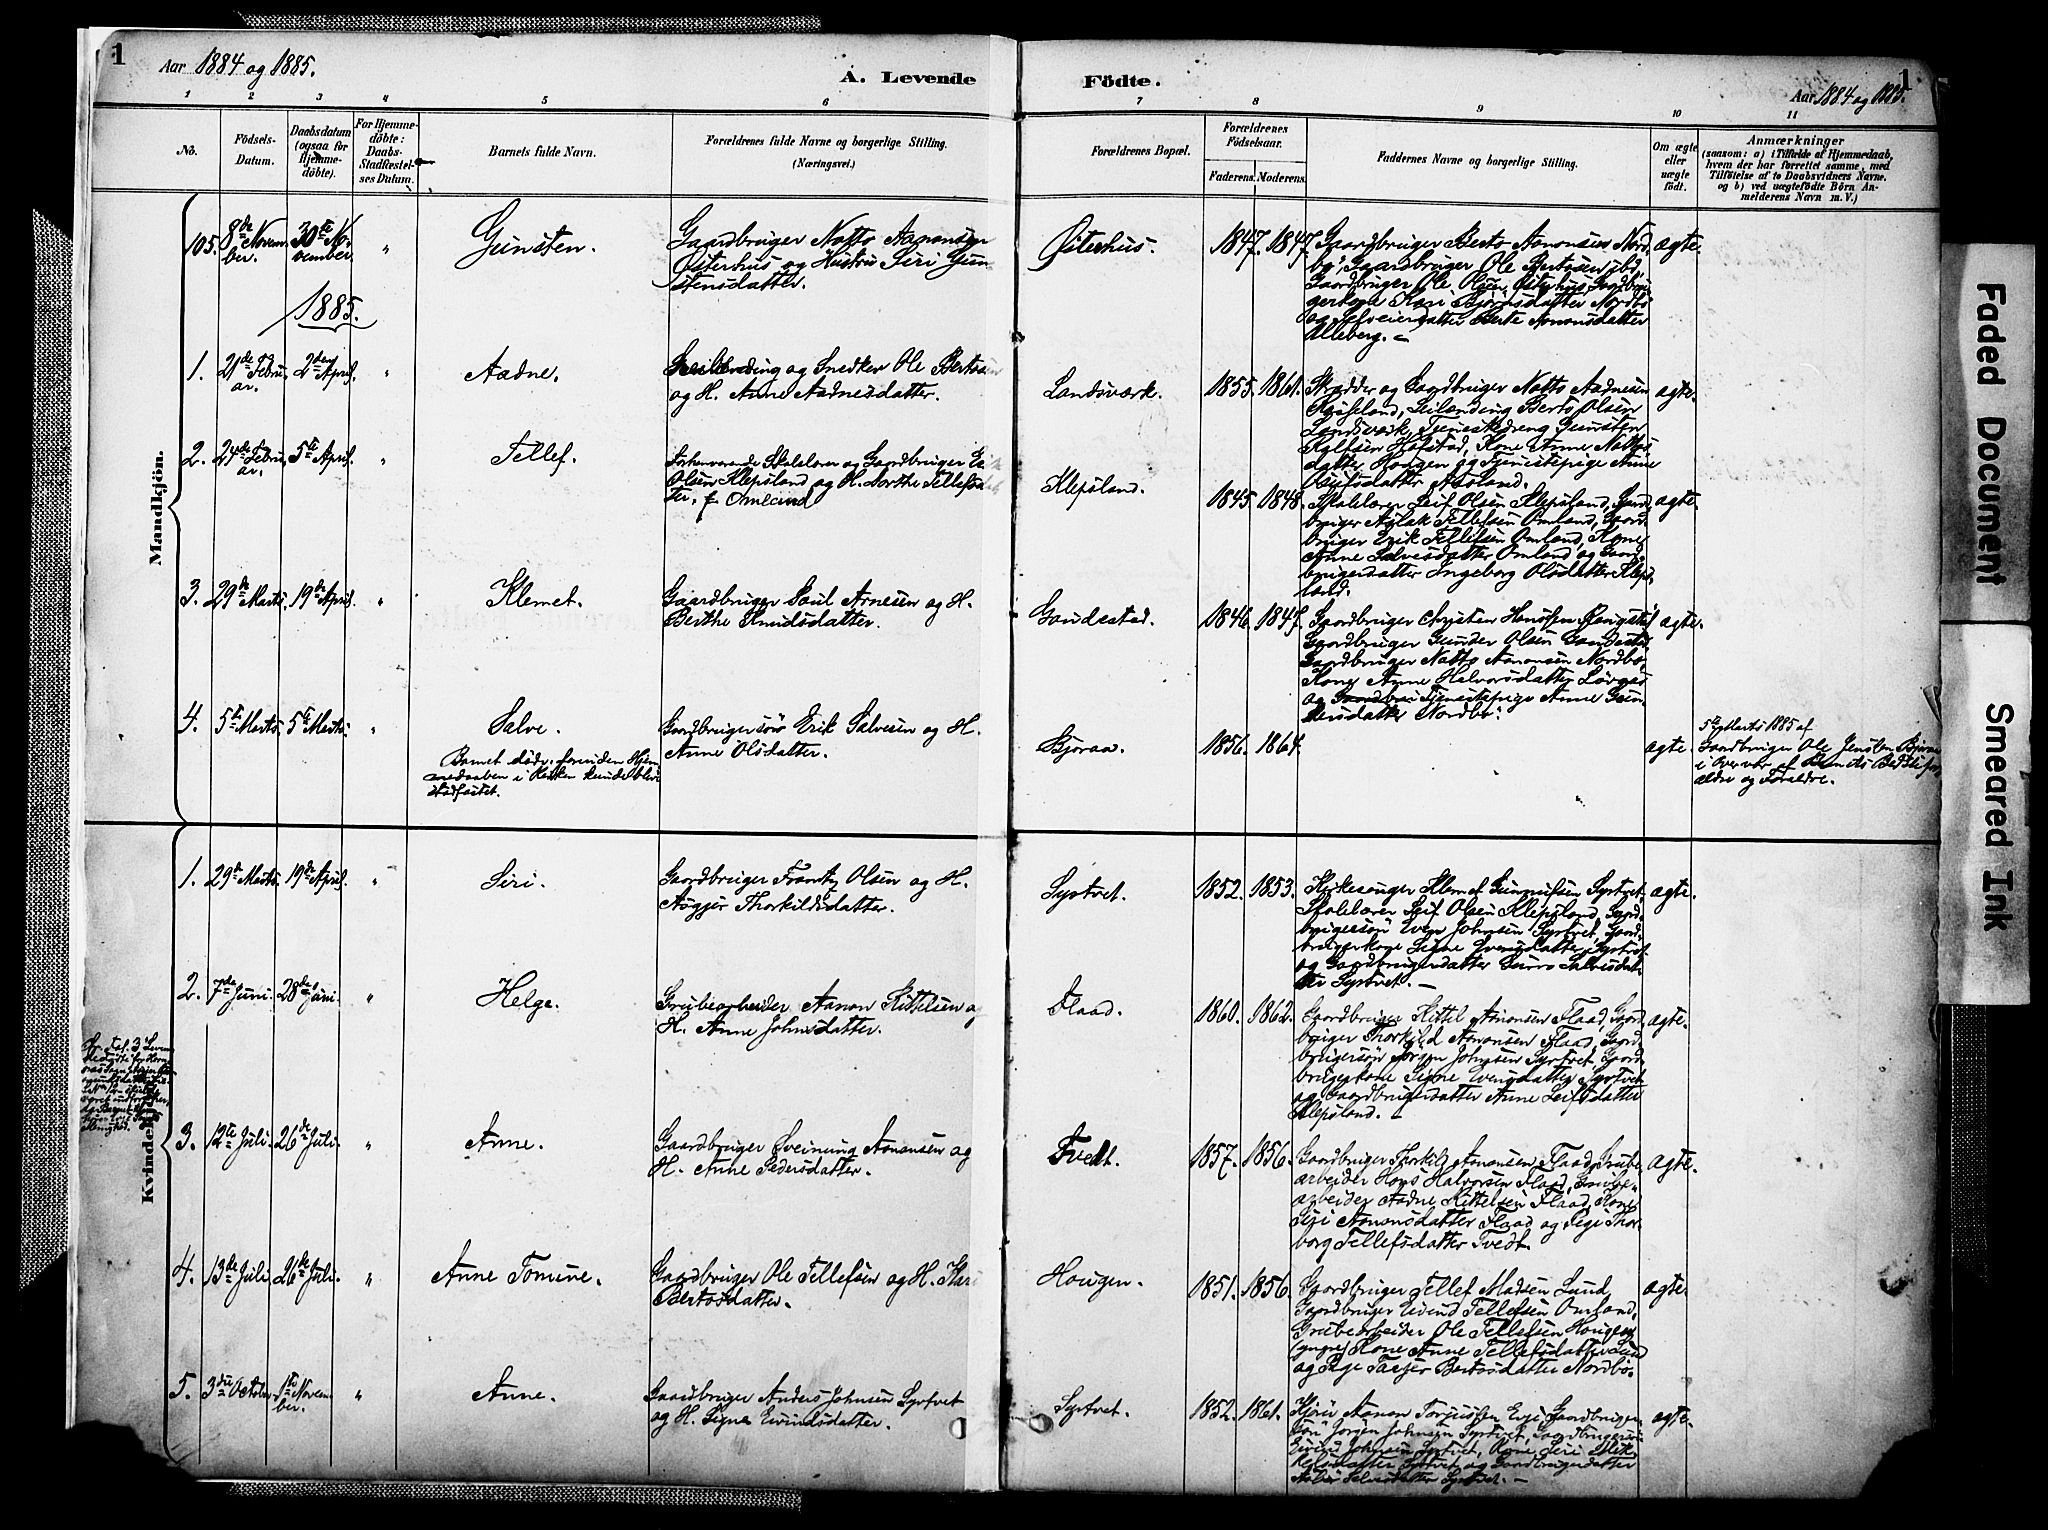 1
Aar 1884 og 1885.
A. Levende
Födte.
Aar 1884 og 1885.
1
1 2 3 4 5 6 7 8 9 10 11
No.
Födsels-
Datum.
Daabsdatum
(ogsaa for
Hjemme-
döbte).
For Hjemme-
döbte:
Daabs-
Stadfæstel-
ses Datum.
Barnets fulde Navn.
Forældrenes fulde Navne og borgerlige Stilling.
(Næringsvei.)
Forældrenes Bopæl.
Forældrenes
Födselsaar.
Faderens. Moderens.
Faddernes Navne og borgerlige Stilling.
Om ægte
eller
uægte
födt.
Anmærkninger
(saasom: a) i Tilfælde af Hjemmedaab,
hvem der har forrettet samme, med
Tilföielse af to Daabsvidners Navne,
og b) ved uægtefödte Börn An-
melderens Navn m. V.)
Mandkjön.
105. 8de Novem
ber.
30te No
vember.
"
Gunsten.
Gaardbruger Natts Aanonsen
Østerhus og Hustru Siri Gun
stensdatter.
Østerhus.
1847. 1847.
Gaardbruger Berts Aanonsen Nord
bø, Gaardbruger Ole Bertssen ibd,
Gaardbruger Ole Olsen Østerhus, Gaardbru
gerkone Kari Bjørnsdatter Nordbø
og Selveierdatter Berte Aanonsdatter
Ulleberg. –
ægte.
1885.
1. 21de Febru
ar.
2den April.
"
Aadne.
og Snedker Ole Bertssen
og H. Anne Aadnesdatter.
Landsværk.
1855. 1861.
Skrædder og Gaardbruger Natts Aadnesen
Leilænding Berts Olsen
Landsværk, Tjenestedreng Gunsten
Hofstad, Kone Anne Natts
datter Hougen og Tjenestepige Anne
Aasland.
ægte.
2. 24de Febru
ar.
5te April.
"
Tellef.
Forhenværende Skolelærer og Gaardbruger
Olsen Klepsland og H. Dorthe Tellefsdat
ter. f. Omland
Klepsland.
1845. 1848.
Skolelærer Leif Olsen Klepsland, Gaard
bruger Aslak Tellefsen Omland, Gaard
bruger Erik Tellefsen Omland, Kone
Anne Salvesdatter Omland og Gaard
brugerdatter Ingeborg Olsdatter Kleps
land.
ægte.
3. 29de Marts. 19de April.
"
Klemet.
Gaardbruger Paul Arnesen og H.
Berthe Knudsdatter.
Gaudestad.
1846. 1847.
Gaardbruger Christen Hansen
Gaardbruger Gunder Olsen Gaudestad
Gaardbruger Natts Aanonsen Nordbø,
Kone Anne Halvorsdatter
og Tjenestepige Anne Gun
dersdatter Nordbø.
ægte.
4. 5te Marts. 5te Marts.
"
Salve.
Barnet døde forinden Hjem
medaaben i Kirken kunde blive
stadfæstet.
Gaardbrugersøn Erik Salvesen og H.
Anne Olsdatter.
Bjoraa.
1856. 1864.
ægte.
5te Marts 1885 af
Gaardbruger Ole Jensen Bjoraa
i Overvær af Barnets Bedstefor
ældre og Forældre.
Kvindekjön.
1. 29de Marts. 19de April.
"
Siri.
Gaardbruger Frantz Olsen og H.
Asgjer Thorkildsdatter.
Syrtvet.
1852. 1853.
Kirkesanger Klemet Gunnufsen Syrtvet,
Skolelærer Leif Olsen Klepsland, Gaard
brugersøn Even Johnsen Syrtvet, Gaard
brugerkone Signe Evensdatter Syrtvet
og Gaardbrugerdatter Gurro Salvesdat
ter Syrtvet. –
ægte.
2. 7de Juni. 28de Juni.
"
Helge.
Grubearbeider Aanon Kittelsen og
H. Anne Johnsdatter.
Flaad.
1860. 1862.
Gaardbruger Kittel Aanonsen Flaad, Gaard
bruger Thorkild Aanonsen Flaad, Gaard
brugersøn Jørgen Johnsen Syrtvet, Gaard
brugerkone Signe Evensdatter Syrtvet
og Gaardbrugerdatter Anne Leifsdatter
Klepsland. –
ægte.
3. 12te Juli. 26de Juli.
"
Anne.
Gaardbruger Sveinung Aanonsen og
H. Anne Pedersdatter.
Tvedt.
1857. 1856.
Gaardbruger Thorkild Aanonsen Flaad, Grube
arbeider Hans Halvorsen Flaad, Grube
arbeider Aadne Kittelsen Flaad, Kone
Siri Aanonsdatter Flaad og Pige Thor
borg Tellefsdatter Tvedt.
ægte.
4. 13de Juli. 26de Juli.
"
Anne Tomine.
Gaardbruger Ole Tellefsen og H. Kari
Bertsdatter.
Hougen.
1851. 1856.
Gaardbruger Tellef Madsen Lund,
Gaardbruger Eivind Tellefsen Omland,
Grubearbeider Ole Tellefsen Hougen
(yngre) Kone Anne Tellefsdatter Lund
og Pige Taasjer Bertsdatter Nordbø.
ægte.
5. 3die October. 1ste Novem
ber.
"
Anne.
Gaardbruger Anders Johnsen Syrtvet
og H. Signe Eivindsdatter.
Syrtvet.
1852. 1861.
Aanon Torjussen Evje, Gaardbruger
søn Jørgen Johnsen Syrtvet, Gaardbrugersøn
Eivind Johnsen Syrtvet, Kone Siri
Syrtvet og Gaardbrugerdatter
Salvesdatter Syrtvet. –
ægte.
Faded Document
Smeared Ink